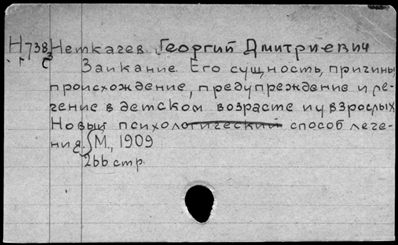 Н738 Неткачев, Георгий Дмитриевич
Заикание. Его сущность, причины,
происхождение, предупреждение и ле-
чение в детском возрасте и у взрослых.
Новый психологический способ лече-
ния. М., 1909
266 стр.